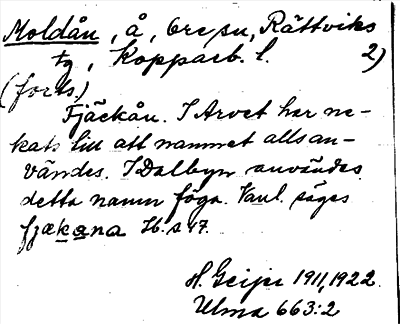 Moldån, å, Ore sn, Rättviks
tg, Kopparb. l. 2)
(forts.)
Fjäckån. I Arvet har ne-
kats till att namnet alls an-
vändes. I Dalbyn användes
detta namn föga. Vanl. säges
fjækana Ib. s 47.
H. Geijer 1911, 1922.
Ulma 663:2